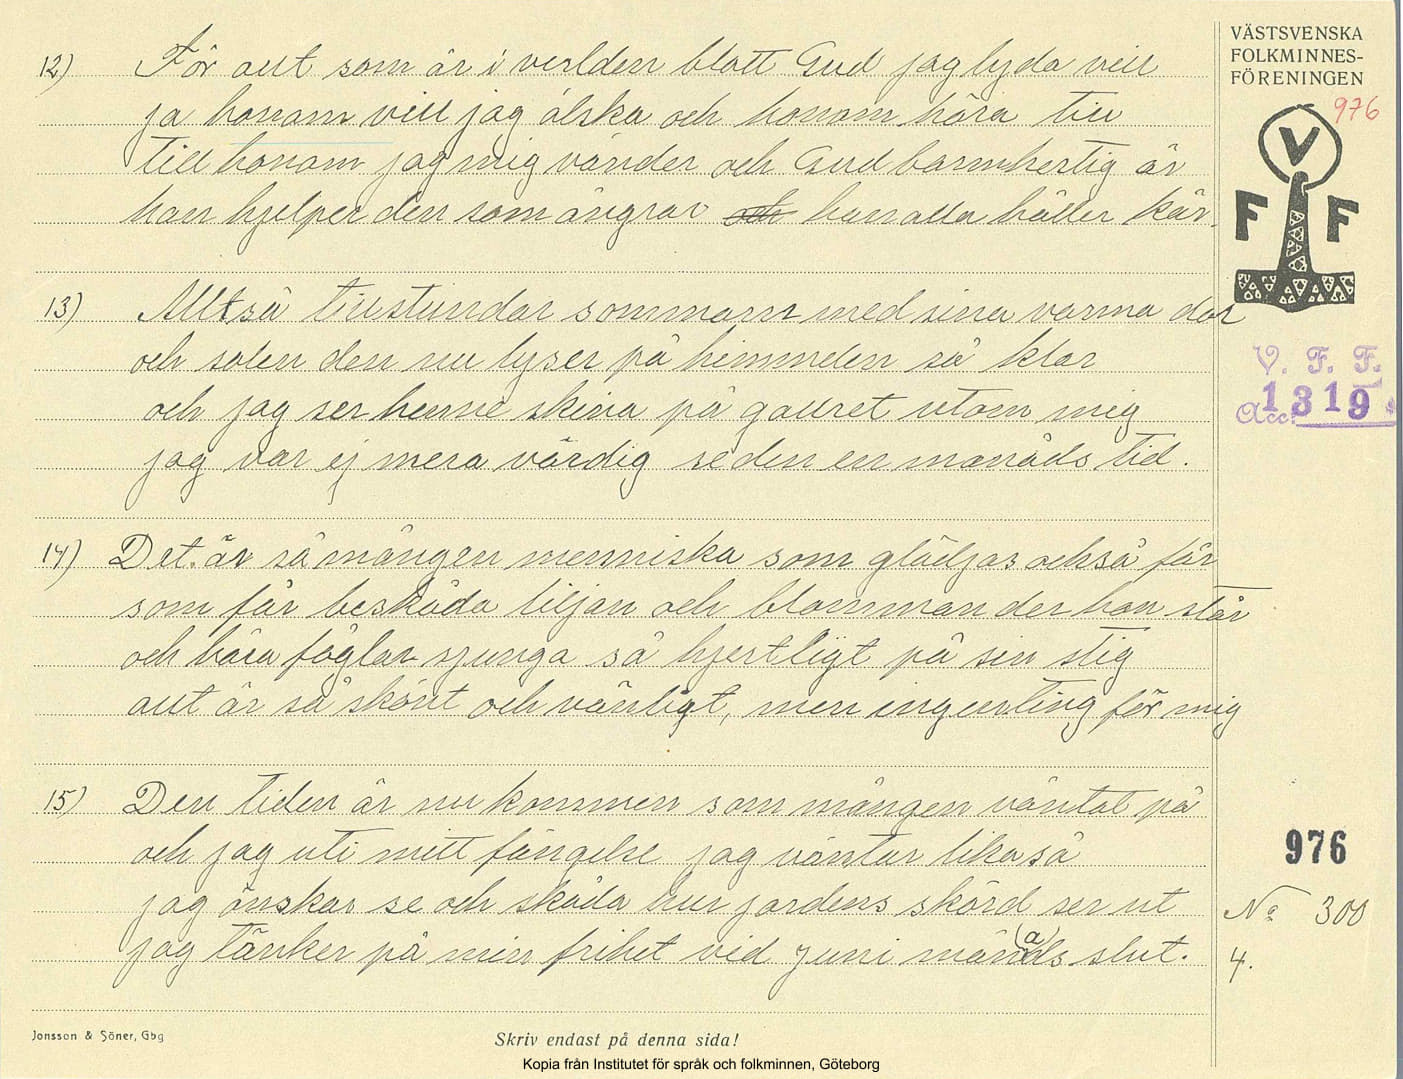 12) För allt som är i verlden blott Gud jag lyda vill
ja honom vill jag älska och honom höra till
till honom jag mig vänder och Gud barmhertig är
han hjelper den som ångrar och han alla håller kär.
13) Alltså tillstundar sommarn med sina varma dar
och solen den nu lyser på himmelen så klar
och jag ser henne skina på gallret utom mig
jag var ej mera värdig se den en månads tid.
14) Det är så mången menniska som glädjas också får
som får beskåda liljan och blomman der hon står
och höra foglar sjunga så hjertligt på sin stig
allt är så skönt och vänligt, men ingenting för mig
15) Den tiden är nu kommen som mången väntat på
och jag uti mitt fängelse jag väntar lika så
jag önskar se och skåda hur jordens skörd ser ut
jag tänker på min frihet vid Juni mån(a)ds slut.
VÄSTSVENSKA
FOLKMINNES-
FÖRENINGEN
976
V
F F
V. F. F.
Acc. 1319
976
No 300
4.
Jonsson & Söner, Gbg
Skriv endast på denna sida!
Kopia från Institutet för språk och folkminnen, Göteborg